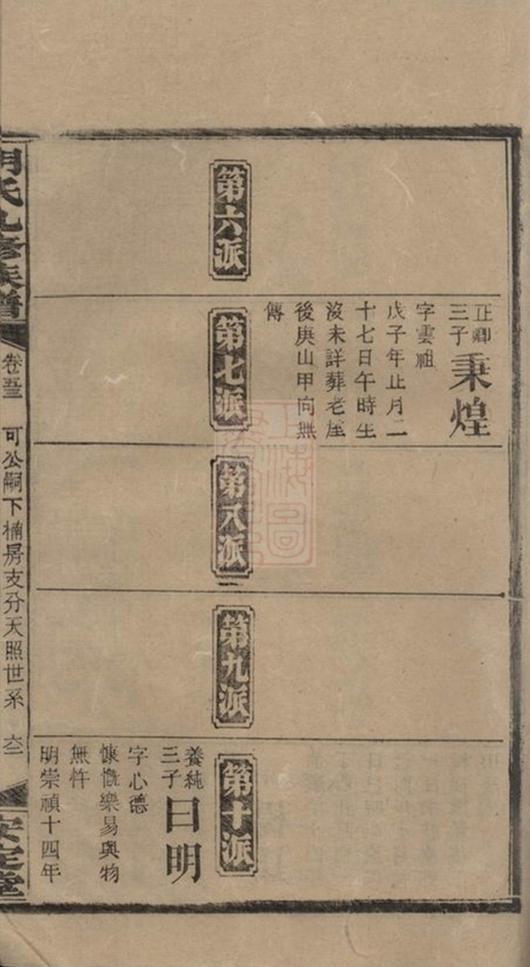 第六派
正卿
三子
秉煌
字雲祖
戊子年正月二
十七日午時生
沒未詳葬老屋
後庚山甲向無
傳
第七派
第八派
第九派
第十派
養純
三子
曰明
字心德
慷慨樂易與物
無忤
明崇禎十四年
胡氏九修族譜
可公嗣下楠房支分天照世系
安定堂